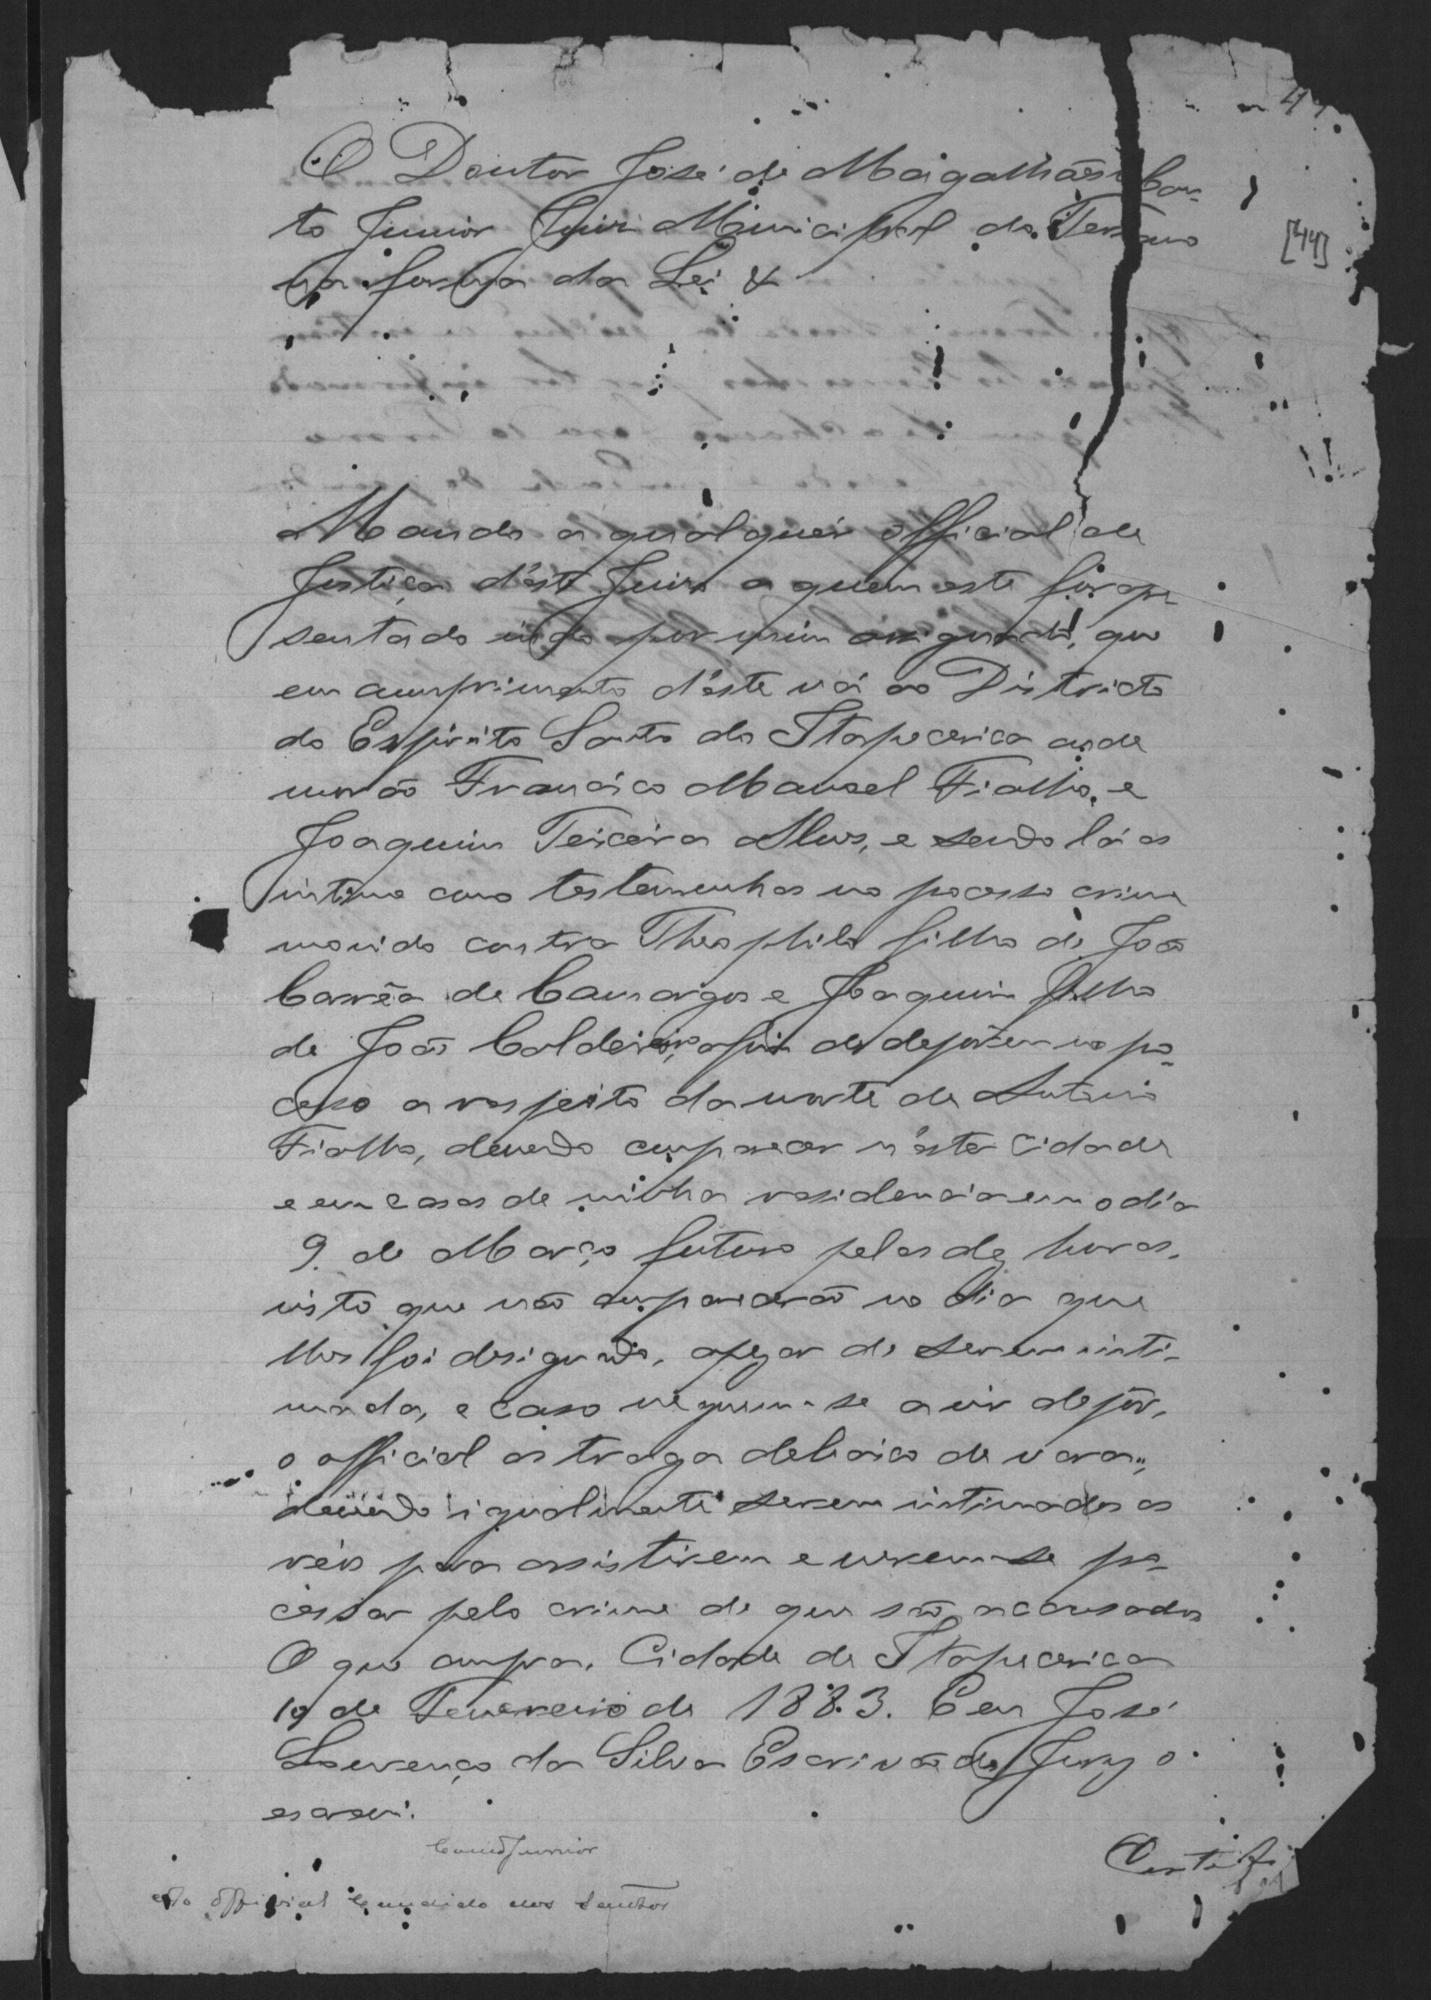 44
O Doutor José de Magalhães Cou-
to Junior Juiz Municipal do Termo
na forma da Lei &
[44]
Mando a qualquer official de
Justiça d'este Juizo a quem este fôr apre
sentado indo por mim assignado, que
em cumprimento d'este vá ao Districto
do Espirito Santo da Itapecerica aonde
morão Francisco Manoel Fialho, e
Joaquim Teixeira Alves, e sendo lá os
intime como testemunhas no processo crime
movido contra Theophilo filho de João
Corrêa de Camargos e Joaquim filho
de João Caldeira, afim de deporem no pro-
cesso a respeito da morte de Antonio
Fialho, devendo comparecer n'esta Cidade
e em casas de minha residencia em o dia
9. de Março futuro pelas dez horas,
visto que não comparecerão no dia que
lhes foi designado, apezar de serem inti-
mados, e caso neguem-se a vir depôr,
o official os traga debaixo de vara,
devendo igualmente serem intimados os
réos para assistirem e verem-se pro-
cessar pelo crime de que são accusados
O que cumpra. Cidade de Itapecerica
19 de Fevereiro de 1883. Eu José
Lourenço da Silva Escrivão do Jury o
escrevi.
Couto Junior
Certifi
official Candido dos Santos